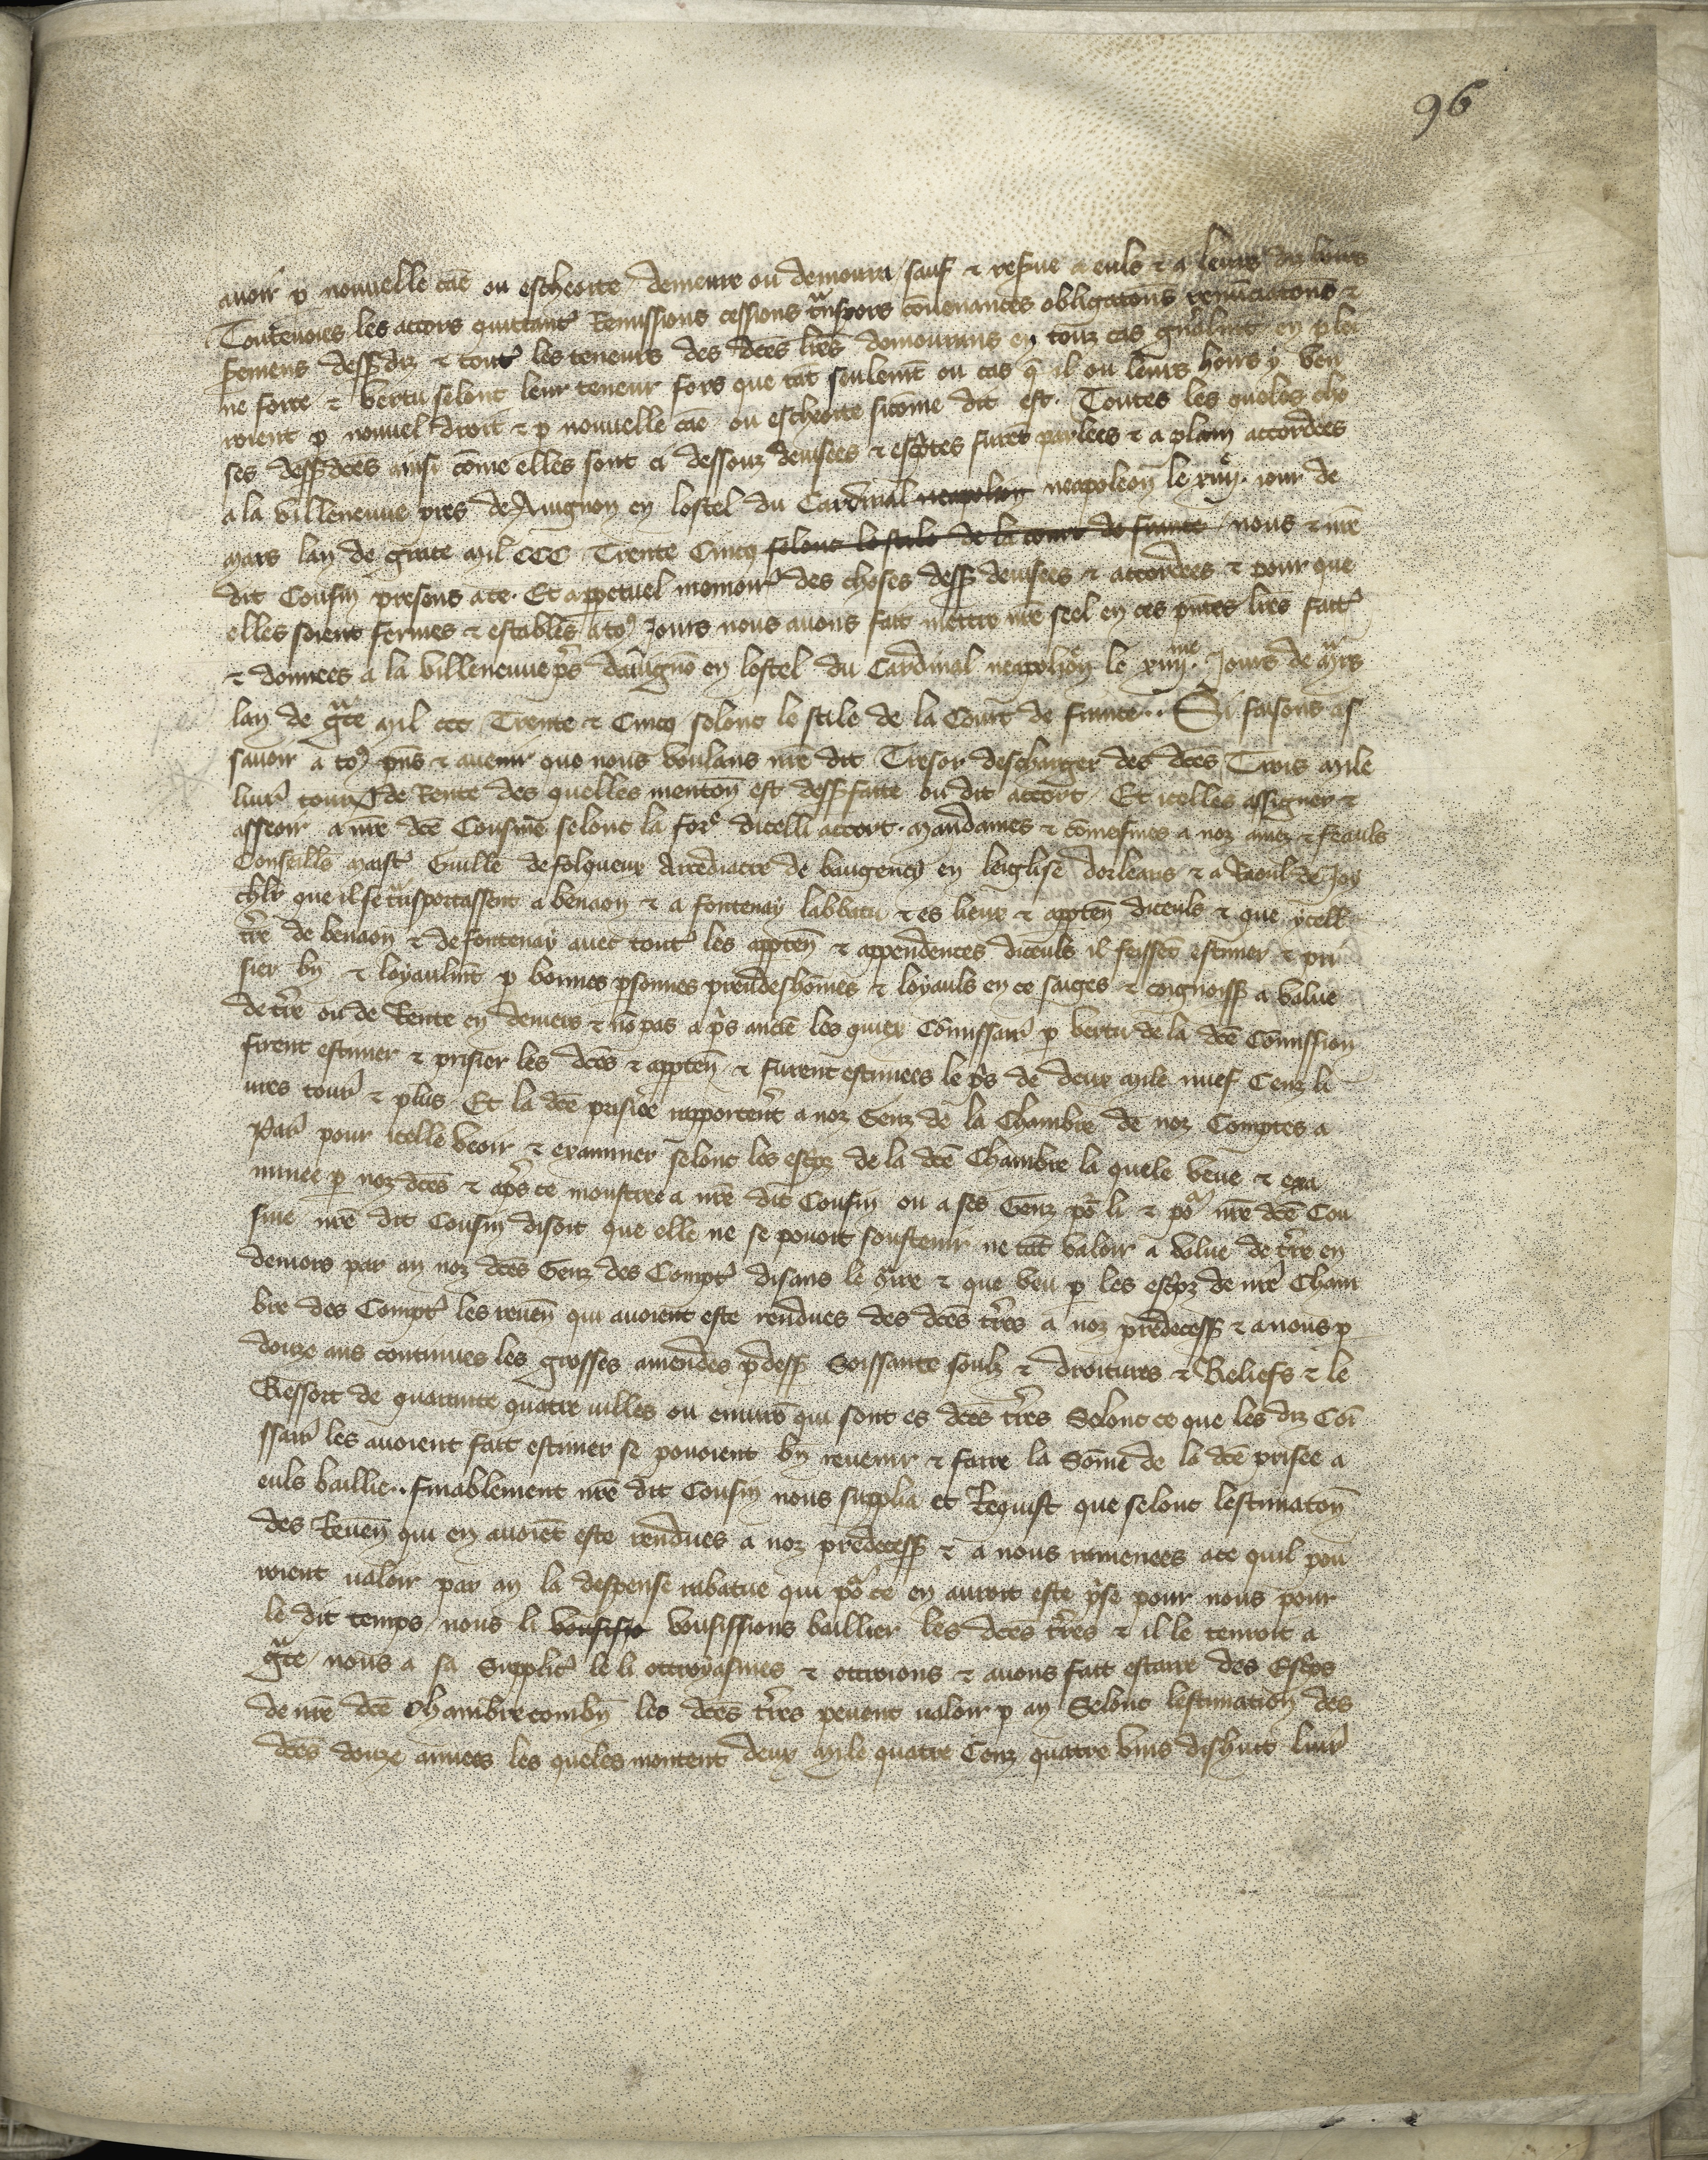 96
auoir p nouuelle cãe ou escheoite demeure ou demourra sauf & resue a euls & a leurs diz hoirs
Toutevoies les accors quittanc̾ Remissions cessions tñspors cõuenances obligatoñs renũciatoñs &
semens dess diz & tout̾ les teneurs des dc̃es lr̃es demourans en touz cas gñalmt en plei
ne force & vertu selonc leur teneur fors que tãt seulemt ou cas q̃ il ou leurs hoirs y ven
roient p nouuel droit & p nouuelle cãe ou escheoite sicõme dit est. Toutes les queles cho
ses dess dc̃es ainsi cõme elles sont ci dessouz deuisees & escp̃tes furẽt parlees & a plain accordees
a la villeneuue pres de Auignon en lostel du Cardinal neapolion neapoleoñ le xiiijͤ. iour de
mars lan de grace mil CCC Trente Cincq selonc le stile de la court de france nous & nr̃e
dit Cousin presens a ce. Et a ppetuel memoir̾ des choses dess deuisees & accordees & pour que
elles soient fermes & estables a to⁹ Jours nous auons fait mettre nr̃e seel en ces pñtes lr̃es fait̾
& donnees a la villeneuue p̃s dauignõ en lostel du Cardinal neapolioñ le xiiijme. Jours de mrs
lan de gce mil ccc Trente & Cincq selonc le stile de la Court de france.. Si faisons as
sauoir a to⁹ pñs & auenir que nous voulans nr̃e dit Tresor descharger des dc̃es Trois mile
liur̾ tourn de Rente des quelles mentoñ est dess faite ou dit accort. Et icelles assigner &
asseoir a nr̃e dc̃e Cousine selonc la for̾ dicelli accort. mandames & cõmeismes a noz amez & feauls
Conseills maist̾ Guillẽ de folqueux Arcediacre de baugency en leiglise dorleans & a Raoul de Joy
chlr que il se tñsportassent a benaon & a fontenay labbatu & es lieux & apptẽn diceuls & que ycell
tr̃re de benaon & de fontenay auec tout̾ les apptẽn & appendences diceuls il feissẽt estimer & pri
sier bñ & loyaulmt p bonnes psonnes preudeshõmes & loyauls en ce saiges & coignoiss a value
de tr̃re ou de Rente en deniers & nõ pas a p̃s anciẽ les quiex Cõmissair̾ p vertu de la dc̃e Cõmission
firent estimer & prisier les dc̃es & apptẽn & furent estimees le p̃s de deux mile nuef Cenz li
ures tour̾ & plus. Et la dc̃e prisiee rapporterẽt a noz Genz de la Chambre de noz Comptes a
Par̾ pour icelle veoir & examiner selonc les escpz de la dc̃e Chambre la quele veue & exa
minee p noz dc̃es & ap̃s ce monstree a nr̃e dit Cousin ou a ses Genz po͛ li & po͛ nr̃e dc̃e Cou
sine nr̃e dit Cousin disoit que elle ne se pouoit soustenir ne tãt valoir a value de tr̃re en
deniers par an noz dc̃es Genz des Compt̾ disans le 9tr̃re & que veu p les escpz de nr̃e Cham
bre des Compt̾ les reueñ qui auoient este rendues des dc̃es tr̃res a noz predecess & a nous p
douze ans continues les grosses amendes p dess Soissante soulz & droitures & Reliefs & le
Ressort de quarante quatre uilles ou enuirõ qui sont es dc̃es tr̃res Selonc ce que les diz Cõi
ssair̾ les auoient fait estimer se pouoient bñ reuenir & faire la Sõme de la dc̃e prisee a
euls baillie.. finablement nr̃e dit Cousin nous supplia et Requist que selonc lestimatoñ
des Reueñ qui en auoiẽt este rendues a noz predecess & a nous ramenees a ce quil pou
roient ualoir par an la despense rabatue qui po͛ ce en auroit este p̃se pour nous pour
le dit temps nous li vousissio vousissions baillier les dc̃es tr̃res & il le tenroit a
gce nous a sa Supplic̾ le li ottroyasmes & ottroions & auons fait estaire des Escps
de nr̃e dc̃e Chambre combñ les dc̃es tr̃res peuent ualoir p an Selonc lestimation des
dc̃es douze annees les queles montent deux mile quatre Cenz quatre vins dishuit liur̾